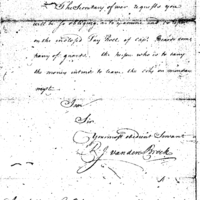 The Secretary of war requests you
will be so obliging as to examine and
on the inclosed Pay Roll of Capt.
pany of guards. the person who is to carry
the money intends to leave the city on monday
next.
I am
Sir
Your most obedient Servant
P. J. van den Broek